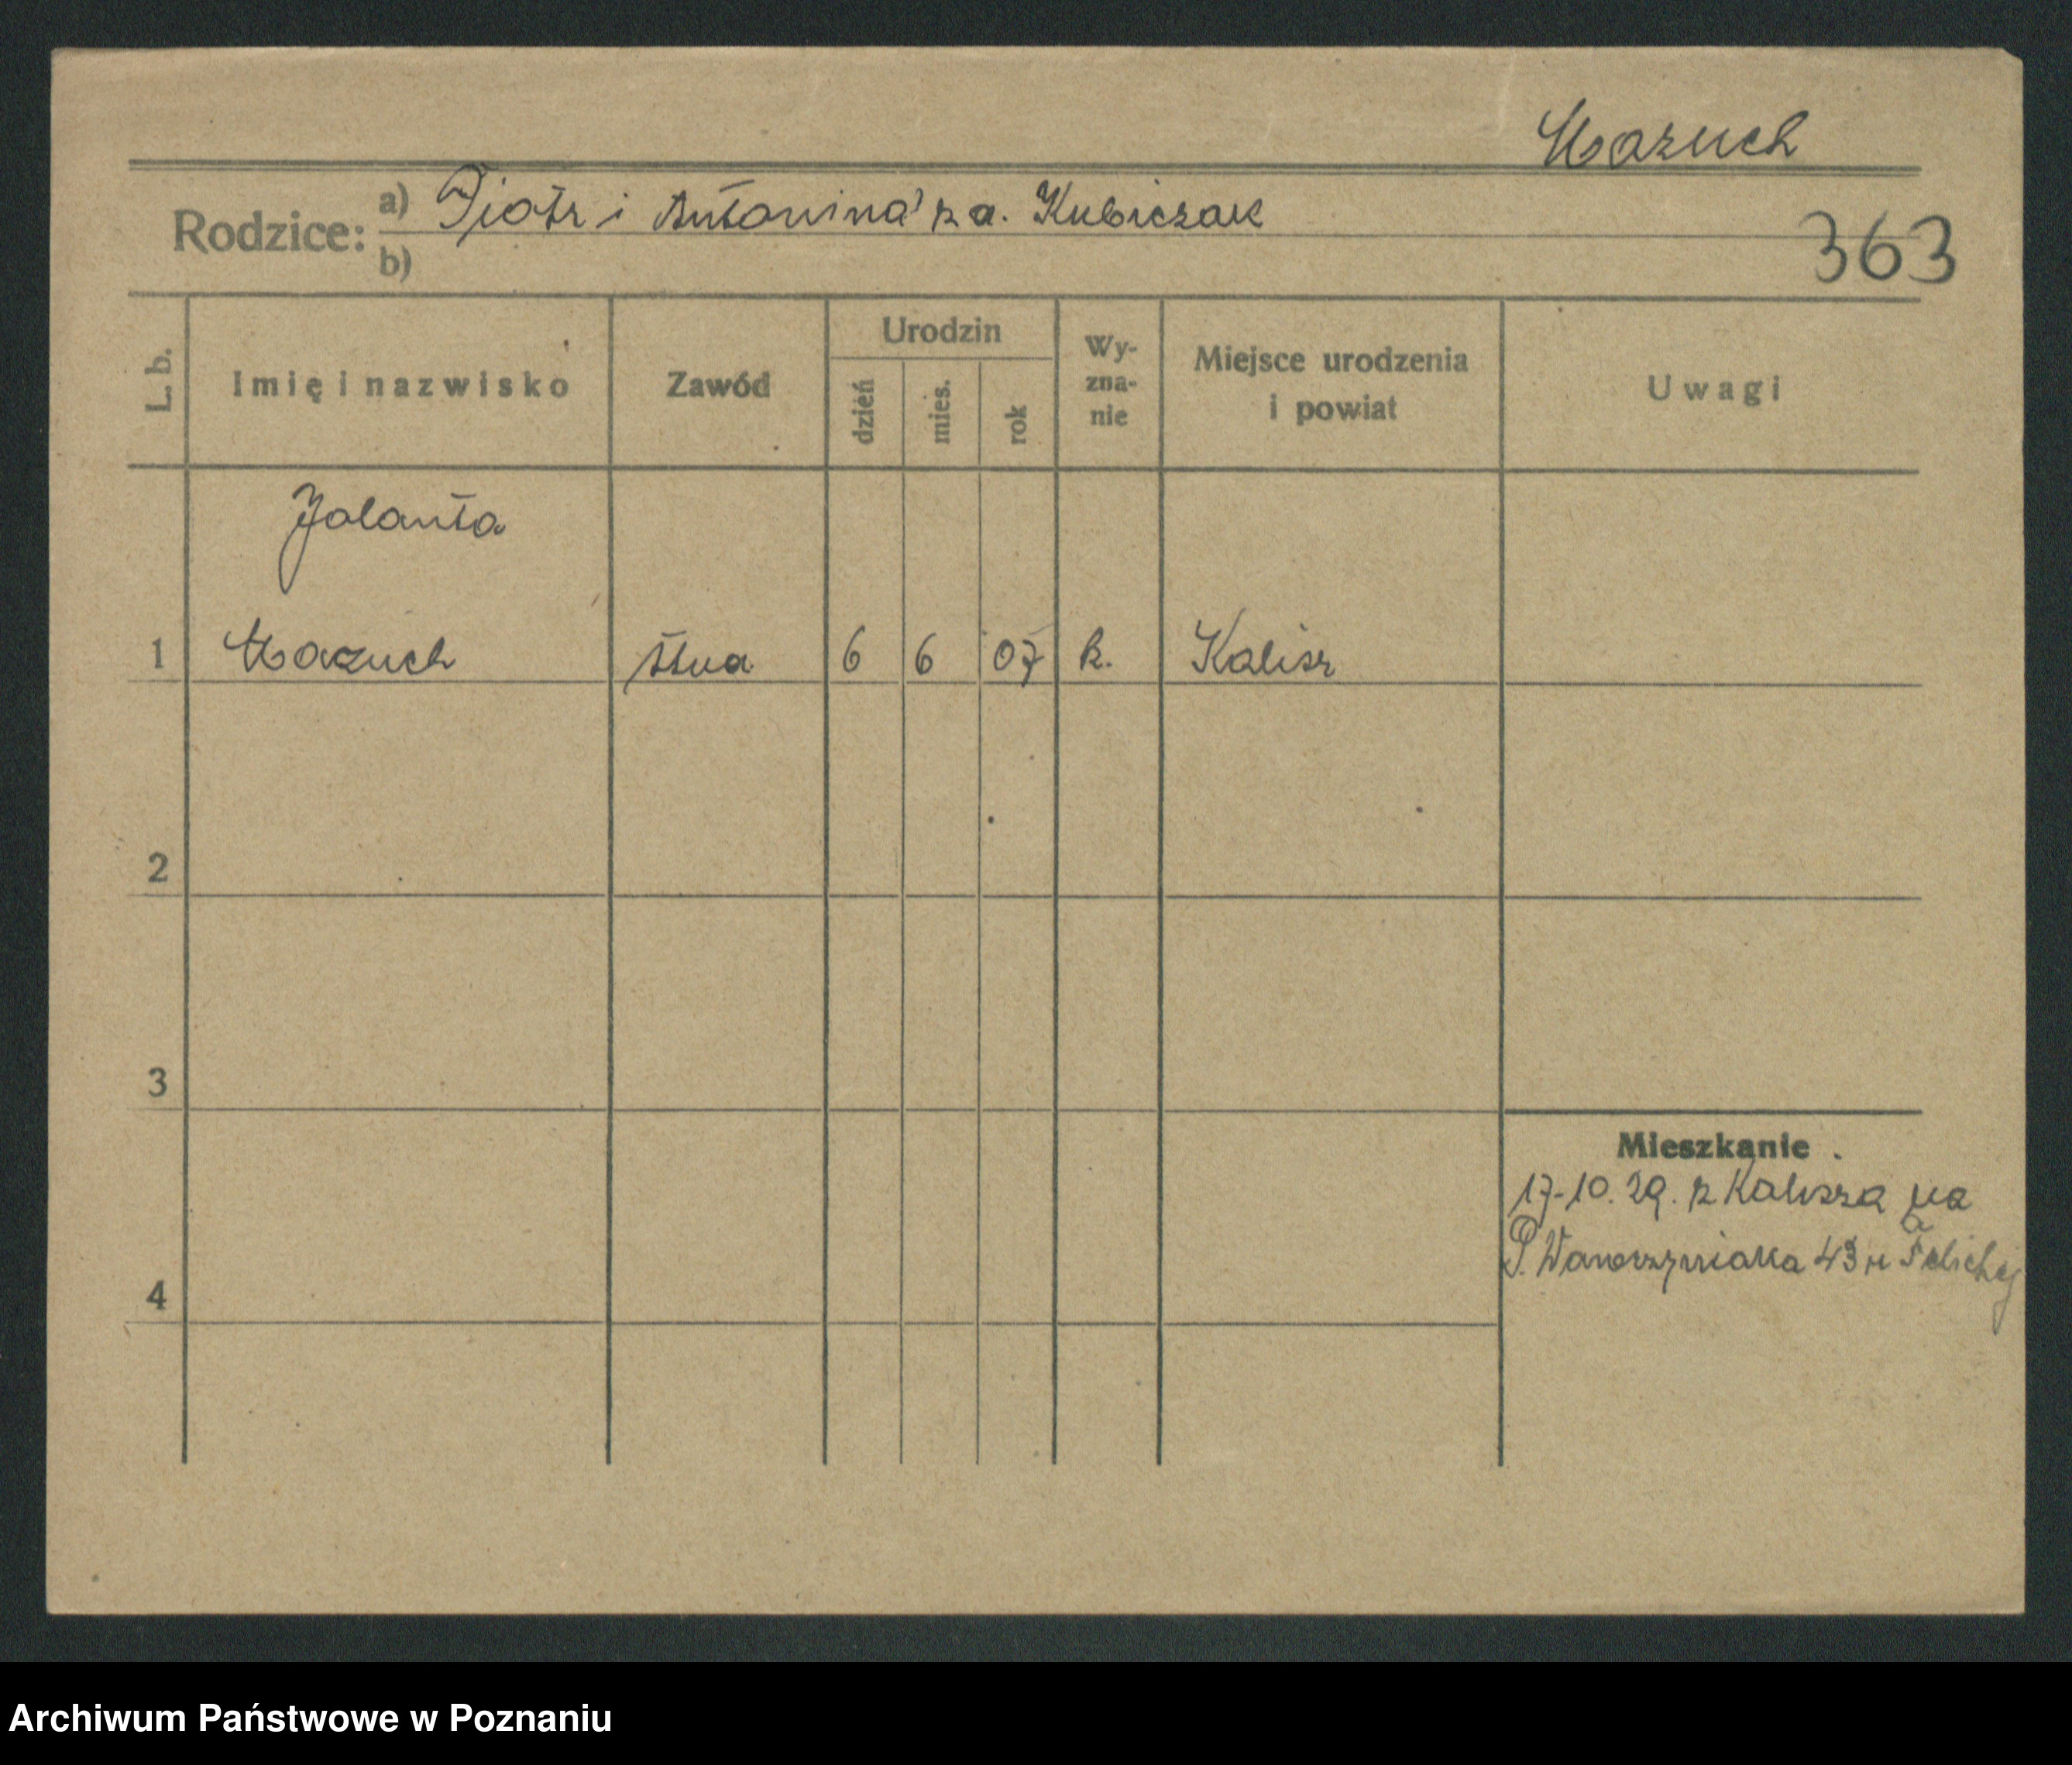 Mazuch
Rodzice: a) Piotr i Antonina z d. Kubiczak
b)
363
L. b.
Imię i nazwisko
Zawód
Urodzin
dzień
mies.
rok
Wy-
zna-
nie
Miejsce urodzenia
i powiat
Uwagi
Jolanta
1 Mazuch 6 6 07 k. Kalisz
2
3
4
Mieszkanie
17-10. 29. z Kalisza na
P. Wawrzyniaka 43 u
Archiwum Państwowe w Poznaniu